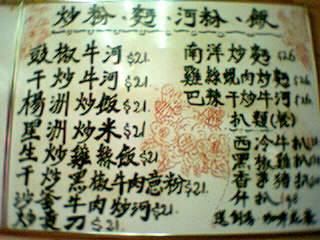 炒粉、麵、河粉、飯
豉椒牛河 $21.
干炒牛河 $21.
楊洲炒飯 $21.
星洲炒米 $21
生炒雞絲飯 $21
干炒黑椒牛肉意粉 $21.
沙爹牛肉炒河 $21.
$21.
南洋炒麵 $26
雞絲 肉炒麵 $26
巴辣干炒牛河 $26
扒類(餐)
西冷牛扒
黑椒雞扒
香茅豬扒
什扒
送例湯